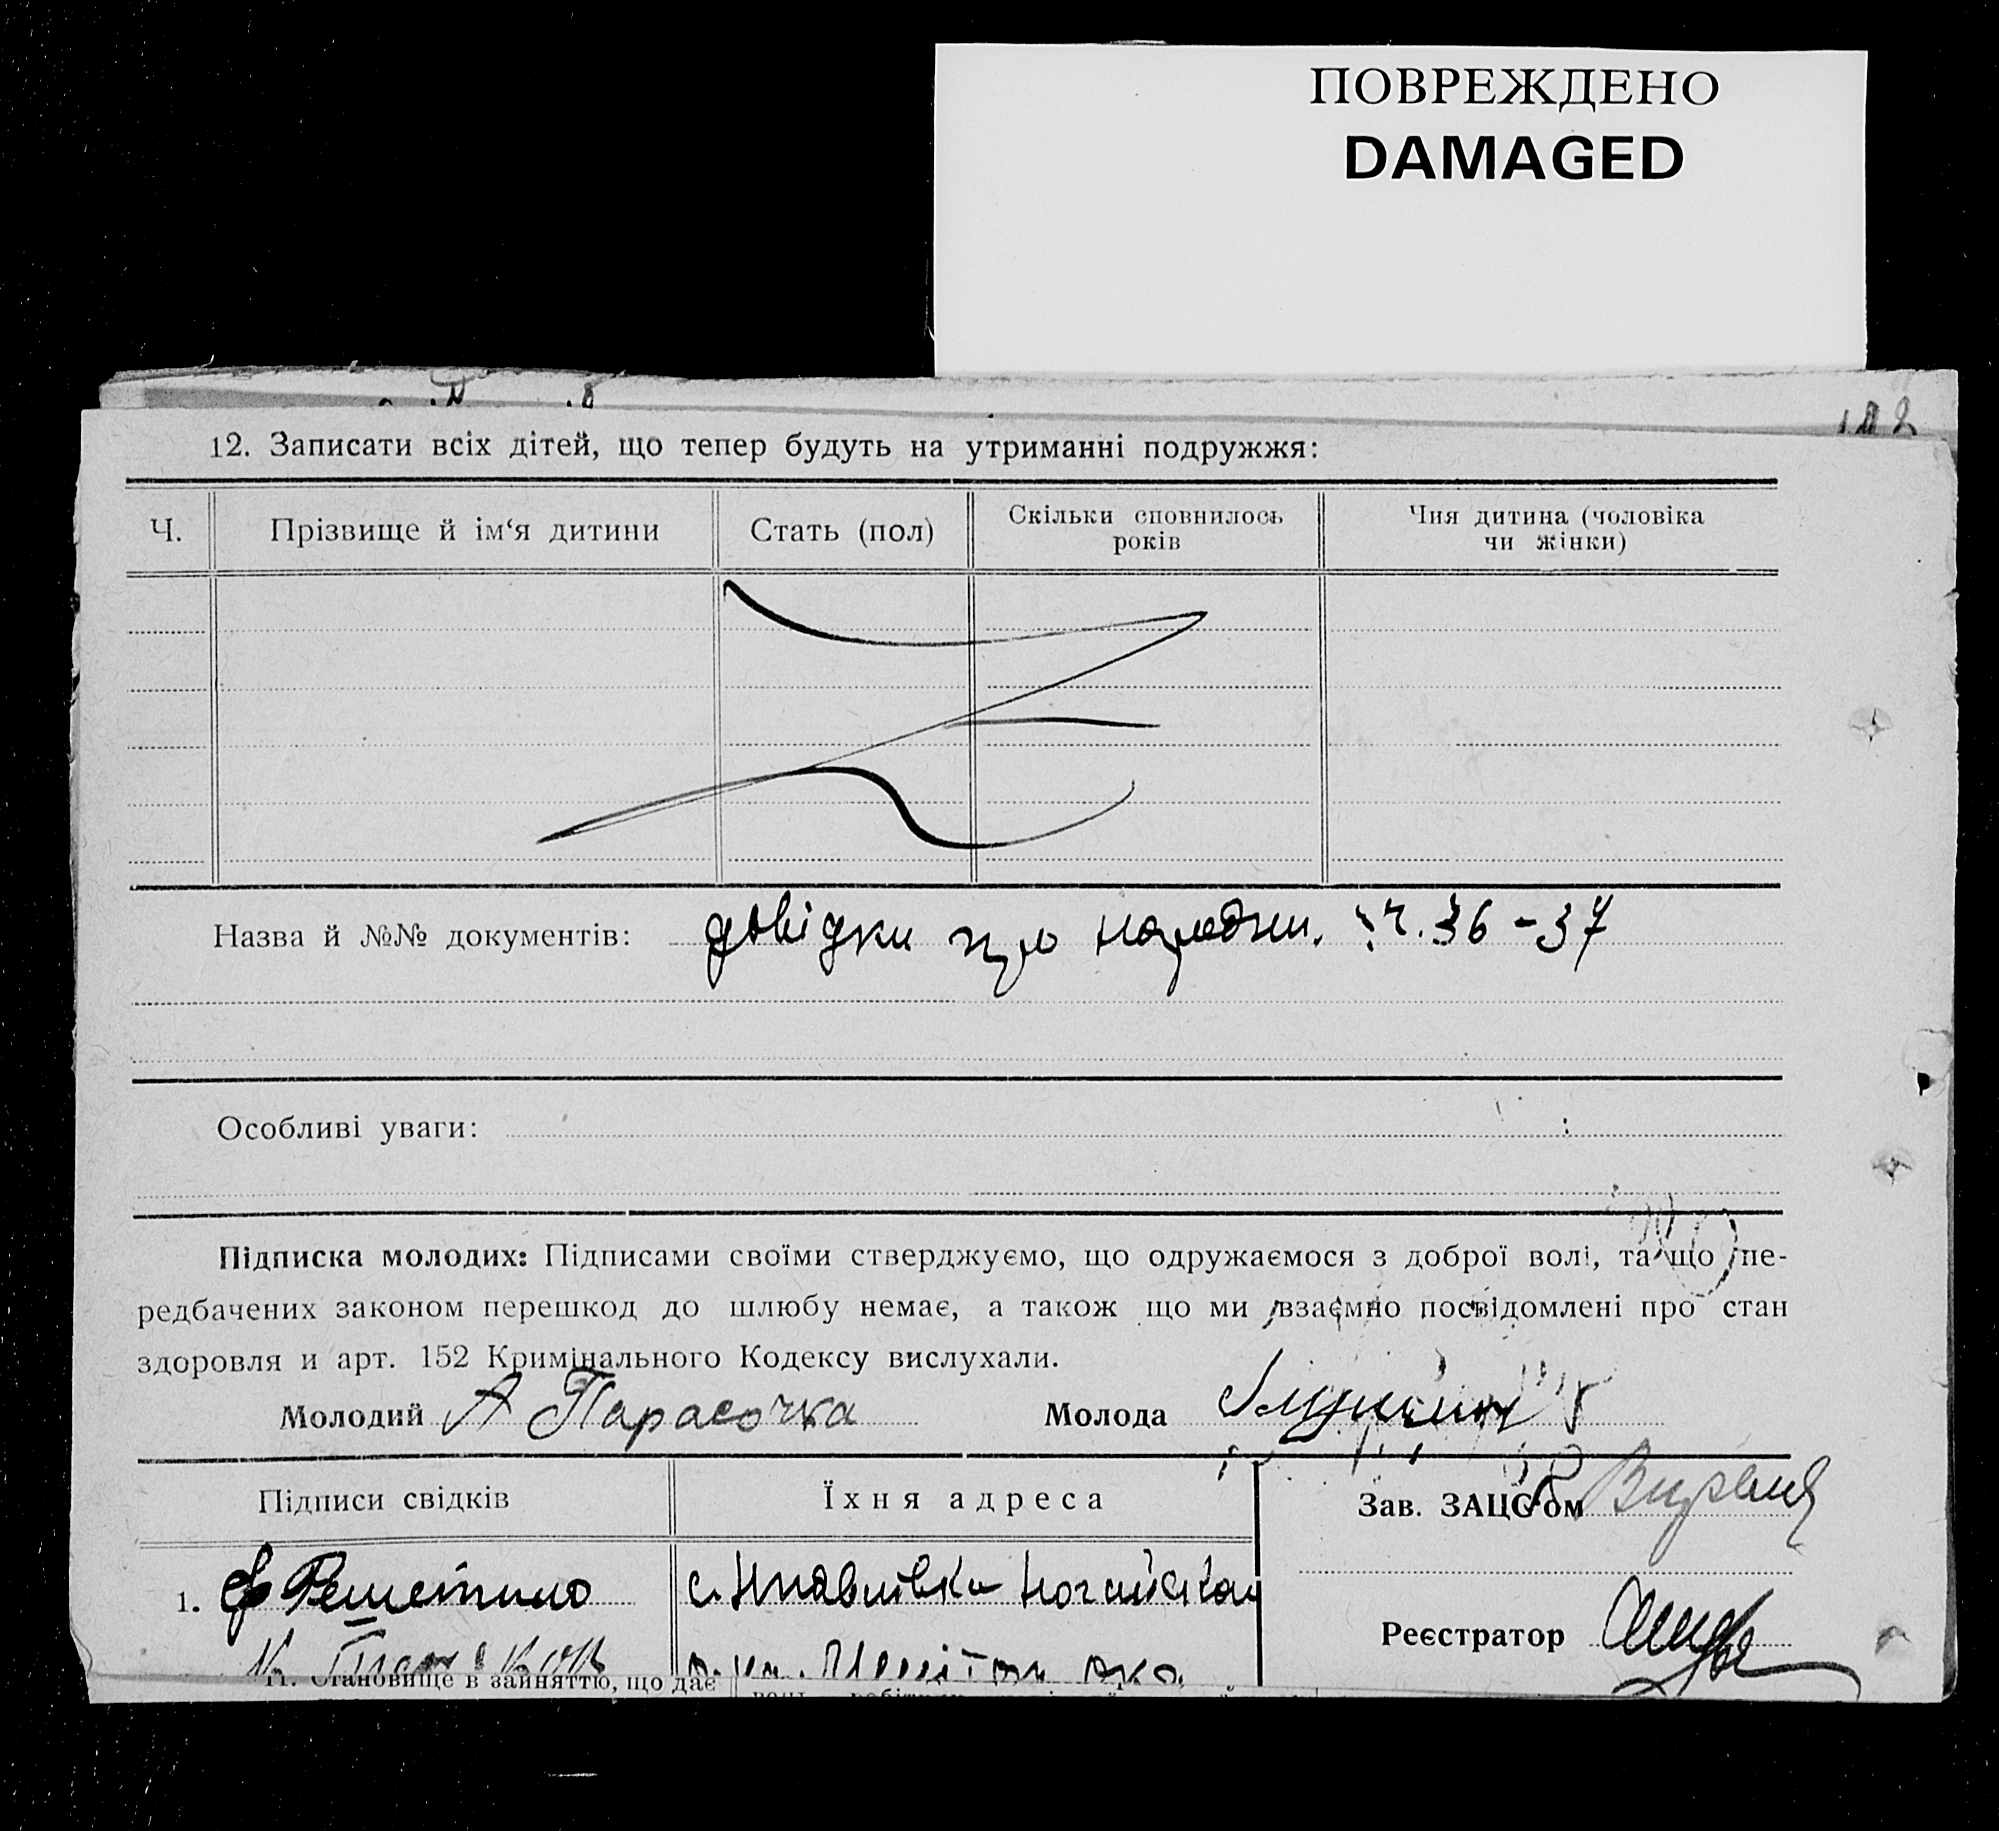 ПОВРЕЖДЕНО
DAMAGED
12. Записати всіх дітей, що тепер будуть на утриманні подружжя:
Ч.
Прізвище й ім‘я дитини
Стать (пол)
Скільки сповнилось
років
Чия дитина (чоловіка
чи жінки)
Назва й №№ документів: довідки про народжн. 36-37
Особливі уваги:
Підписка молодих: Підписами своїми стверджуємо, що одружаємося з доброї волі, та що пе-
редбачених законом перешкод до шлюбу немає, а також що ми взаємно посвідомлені про стан
здоровля и арт. 152 Кримінального Кодексу вислухали.
Молодий А Парасочка Молода
Підписи свідків
Їхня адреса
Зав. ЗАЦС'ом
1. Решетило с.
Реєстратор
11. Становище в зайняттю, що дає